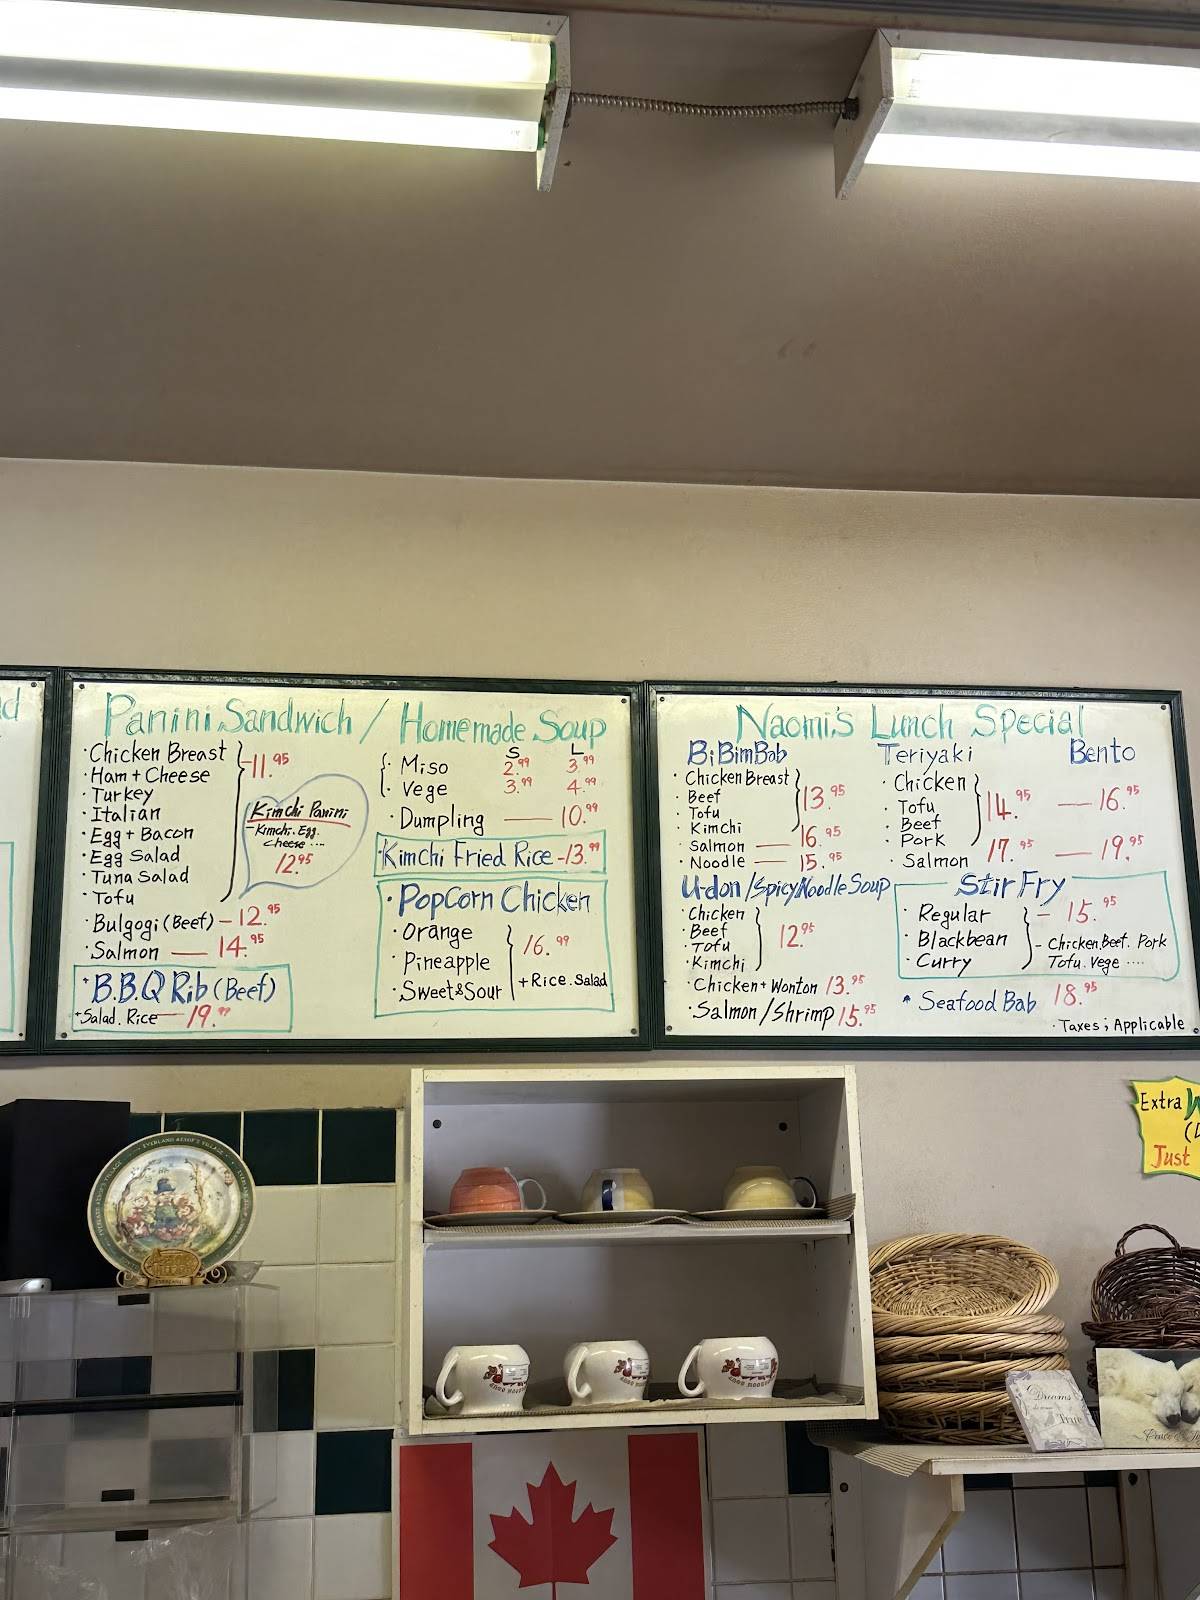 d
Panini Sandwich / Homemade Soup
· Chicken Breast
· Ham + Cheese
· Turkey
· Italian
· Egg + Bacon
· Egg Salad
· Tuna Salad
· Tofu
— 11.95
Kimchi Panini
- Kimchi. Egg.
cheese ....
12.95
· Bulgogi (Beef) — 12.95
· Salmon — 14.95
· B.B.Q Rib (Beef)
+ Salad. Rice — 19.99
S L
· Miso 2.99 3.99
· Vege 3.99 4.99
· Dumpling — 10.99
· Kimchi Fried Rice - 13.99
· PopCorn Chicken
· Orange
· Pineapple
· Sweet & Sour
16.99
+ Rice. Salad
Naomi's Lunch Special
BiBimBab
· Chicken Breast
· Beef
· Tofu
· Kimchi
13.95
· Salmon — 16.95
· Noodle — 15.95
Teriyaki Bento
· Chicken
· Tofu
· Beef
· Pork
14.95 — 16.95
· Salmon 17.95 — 19.95
Udon / Spicy Noodle Soup
· Chicken
· Beef
· Tofu
· Kimchi
12.95
· Chicken + Wonton 13.95
· Salmon / Shrimp 15.95
Stir Fry
· Regular
· Blackbean
· Curry
— 15.95
- Chicken. Beef. Pork
Tofu. Vege ....
* Seafood Bab 18.95
· Taxes ; Applicable
Extra
Just
Dreams
True